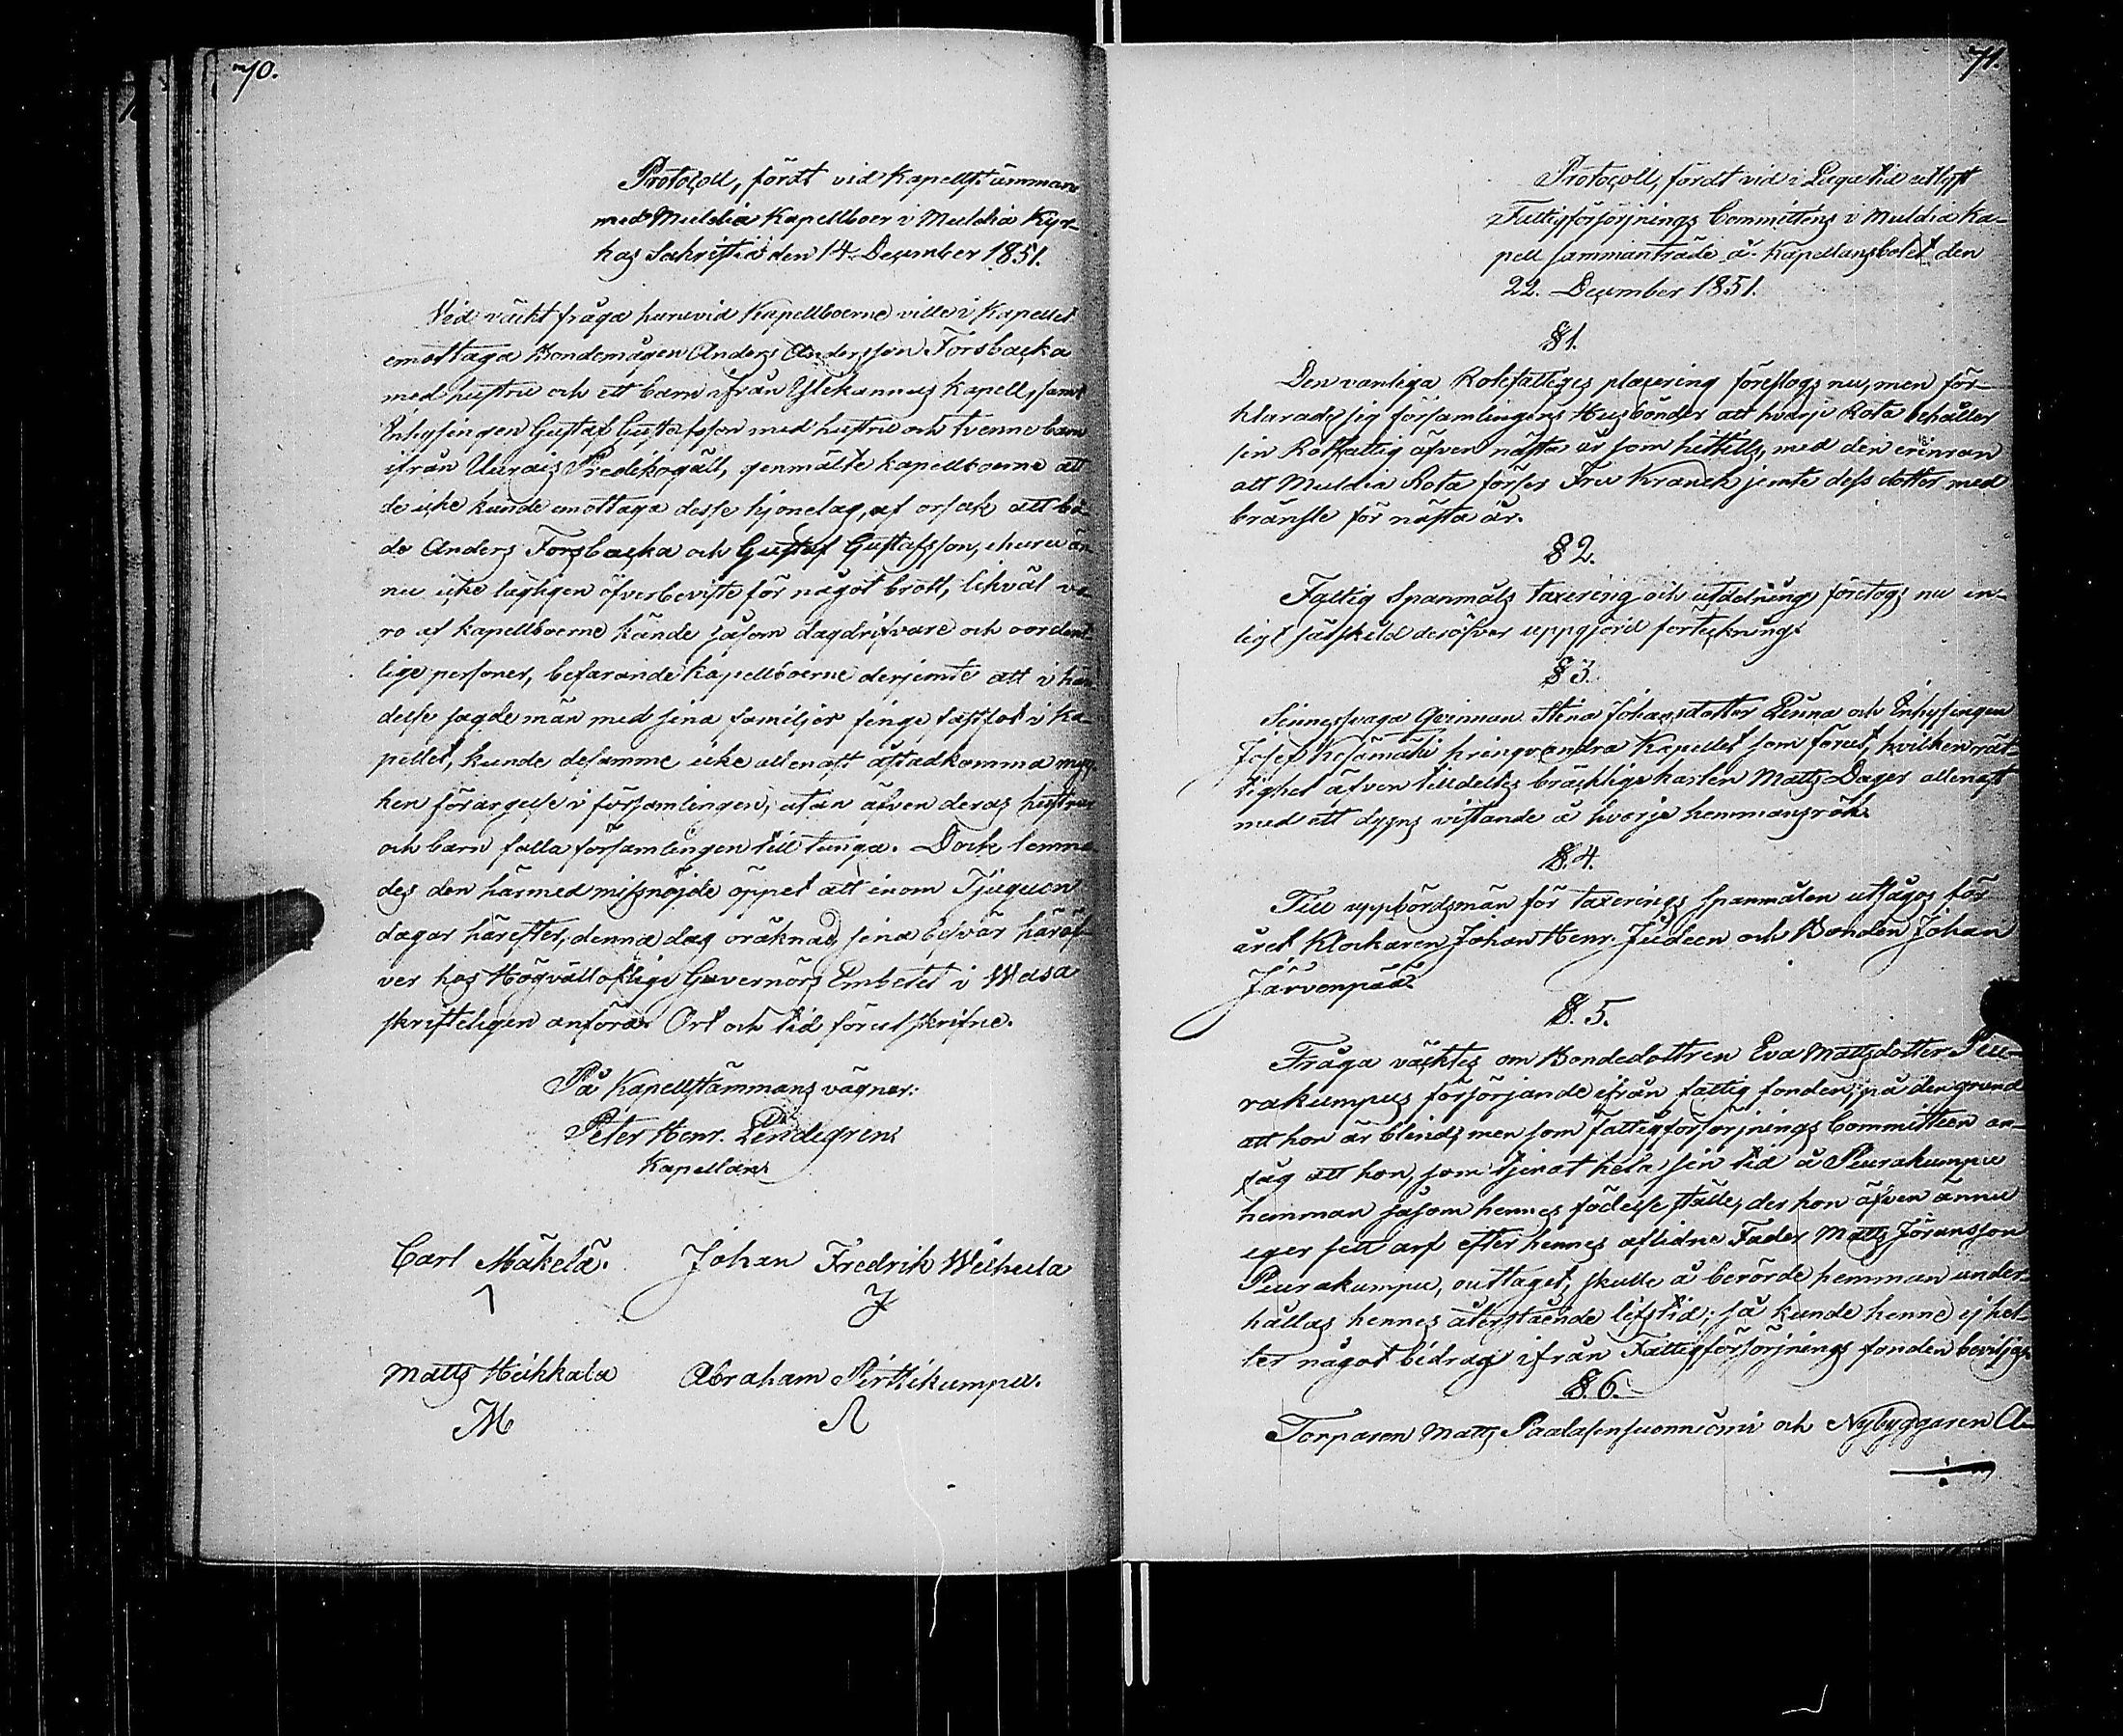 70.
Protocoll, fördt vid Kapellstämman
med Muldia Kapellboer i Muldia Kyr-
kas Sakristia den 14 December 1851.
Vid väckt fråga huruvid Kapellboerne ville i Kapellet
emottaga Bondemågen Anders Andersson Forsbacka
med hustru och ett barn ifrån Ylikannus Kapell, samt
Inhysingen Gustaf Gustafsson med hustru och tvenne barn
ifrån Uurais Predikogäll, genmälte kapellboerne att
de icke kunde emottaga desse hjonelag, af orsak att bå-
de Anders Forsbacka och Gustaf Gustafsson, ehuru än-
nu icke lagligen öfverbeviste för något brott, likväl vo-
ro af kapellboerne kände såsom dagdrifvare och oordent-
lige personer, befarande kapellboerne derjemte att i hän-
delse sagde män med sina familjer finge fastfot i Ka-
pellet, kunde desamme icke allenast åstadkomma myc-
ken förargelse i församlingen, utan äfven deras hustrur
och barn falla församlingen till tunga. Dock lemna-
des den härmed missnöjde öppet att inom Tjuguon
dagar härefter, denna dag oräknad, sina besvär häröf-
ver hos Högvällofliga Guvernörs Embetet i Wasa
skrifteligen anföra. Ort och tid förut skrifne.
På Kapellstämmans vägnar:
Peter Henr. Lindegren
Kapellan
Carl Mäkelä. Johan Fredrik Weihula
Matts Heikkala Abraham Pirttikumpu.
M
71.
Protocoll, fördt vid i Laga tid utlyst
Fattigförsörjnings Committens i Muldia Ka-
pell sammanträde å Kapellansbolet den
22. December 1851.
§ 1.
Den vanliga Rotefattiges placering föreslogs nu, men för-
klarade sig församlingens Husbönder att hvarje Rota behåller
sin Rotfattig äfven nästa år som hittills, med den erinran
att Muldia Rota förser Fru Kranck jemte dess dotter med
bränsle för nästa år.
§ 2.
Fattig Spanmåls taxering och utdelning företogs nu en-
ligt särskild deröfver uppgjord förteckning.
§ 3.
Sinnessvaga Qvinnan Stina Johansdotter Linna och Inhysingen
Josef Kesämäki kringvandra Kapellet som förut, hvilken rät-
tighet äfven tilldeltes bräcklige karlen Matts Dager allenast
med ett dygns vistande å hvarje hemmansrök.
§. 4.
Till uppbördsmän för taxerings spanmålen utsågos för
året Klockaren Johan Henr. Judeen och Bonden Johan
Järvenpää.
§. 5.
Fråga väcktes om Bondedottren Eva Mattsdotter Peu-
rakumpus försörjande ifrån fattig fonden, på den grund
att hon är blind; men som Fattigförsörjnings Committeen an-
såg att hon, som tjenat hela sin tid å Peurakumpu
hemman såsom hennes födelse ställe, der hon äfven ännu
eger sitt arf efter hennes aflidne Fader Matts Göransson
Peurakumpu, outtaget, skulle å berörde hemman under-
hållas hennes återstående lifstid; så kunde henne ej hel-
ler något bidrag ifrån Fattigförsörjnings fonden beviljas.
§. 6.
Torparen Matts och Nybyggaren A-